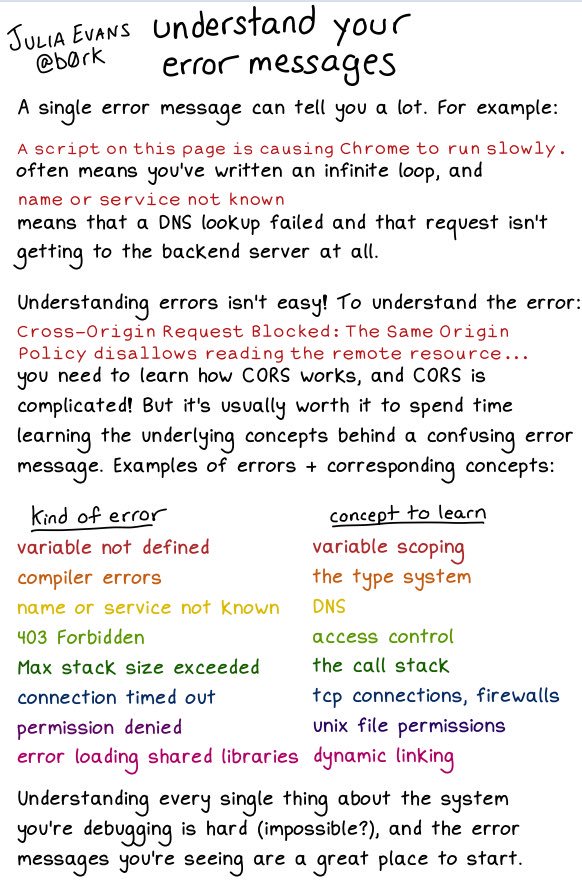 JULIA EVANS
@b0rk
understand your
error messages
A single error message can tell you a lot. For example:
A script on this page is causing Chrome to run slowly.
often means you've written an infinite loop, and
name or service not known
means that a DNS lookup failed and that request isn't
getting to the backend server at all.
Understanding errors isn't easy! To understand the error:
Cross-Origin Request Blocked: The Same Origin
Policy disallows reading the remote resource...
you need to learn how CORS works, and CORS is
complicated! But it's usually worth it to spend time
learning the underlying concepts behind a confusing error
message. Examples of errors + corresponding concepts:
kind of error concept to learn
variable not defined variable scoping
compiler errors the type system
name or service not known DNS
403 Forbidden access control
Max stack size exceeded the call stack
connection timed out tcp connections, firewalls
permission denied unix file permissions
error loading shared libraries dynamic linking
Understanding every single thing about the system
you're debugging is hard (impossible?), and the error
messages you're seeing are a great place to start.